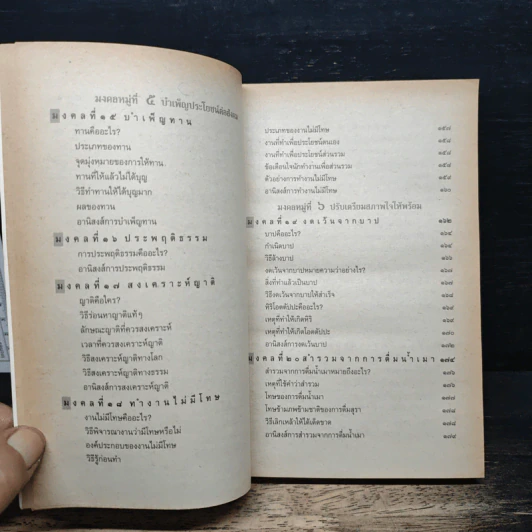 มงคลหมู่ที่ ๕ บำเพ็ญประโยชน์ต่อสังคม
มงคลที่ ๑๕ บำเพ็ญทาน
ทานคืออะไร?
ประเภทของทาน
จุดมุ่งหมายของการให้ทาน
ทานที่ให้แล้วไม่ได้บุญ
วิธีทำทานให้ได้บุญมาก
ผลของทาน
อานิสงส์การบำเพ็ญทาน
มงคลที่ ๑๖ ประพฤติธรรม
การประพฤติธรรมคืออะไร?
อานิสงส์การประพฤติธรรม
มงคลที่ ๑๗ สงเคราะห์ญาติ
ญาติคือใคร?
วิธีร่อนหาญาติแท้ๆ
ลักษณะญาติที่ควรสงเคราะห์
เวลาที่ควรสงเคราะห์ญาติ
วิธีสงเคราะห์ญาติทางโลก
วิธีสงเคราะห์ญาติทางธรรม
อานิสงส์การสงเคราะห์ญาติ
มงคลที่ ๑๘ ทำงานไม่มีโทษ
งานไม่มีโทษคืออะไร?
วิธีพิจารณางานว่ามีโทษหรือไม่
องค์ประกอบของงานไม่มีโทษ
วิธีรู้ก่อนทำ
ประเภทของงานไม่มีโทษ ๑๕๗
งานที่ทำเพื่อประโยชน์ตนเอง ๑๕๘
งานที่ทำเพื่อประโยชน์ส่วนรวม ๑๕๘
ข้อเตือนใจนักทำงานเพื่อส่วนรวม ๑๕๘
ตัวอย่างการทำงานไม่มีโทษ ๑๕๙
อานิสงส์การทำงานไม่มีโทษ ๑๖๐
มงคลหมู่ที่ ๖ ปรับเตรียมสภาพใจให้พร้อม
มงคลที่ ๑๙ งดเว้นจากบาป ๑๖๒
บาปคืออะไร? ๑๖๔
กำเนิดบาป ๑๖๔
วิธีล้างบาป ๑๖๕
งดเว้นจากบาปหมายความว่าอย่างไร? ๑๖๗
สิ่งที่ทำแล้วเป็นบาป ๑๖๗
วิธีงดเว้นจากบาปให้สำเร็จ ๑๖๘
หิริโอตตัปปะคืออะไร? ๑๖๘
เหตุที่ทำให้เกิดหิริ ๑๖๙
เหตุที่ทำให้เกิดโอตตัปปะ ๑๗๐
อานิสงส์การงดเว้นบาป ๑๗๒
มงคลที่ ๒๐ สำรวมจากการดื่มน้ำเมา ๑๗๔
สำรวมจากการดื่มน้ำเมาหมายถึงอะไร? ๑๗๖
เหตุที่ใช้คำว่าสำรวม ๑๗๖
โทษของการดื่มน้ำเมา ๑๗๗
โทษข้ามภพข้ามชาติของการดื่มสุรา ๑๗๗
วิธีเลิกเหล้าให้ได้เด็ดขาด ๑๗๘
อานิสงส์การสำรวมจากการดื่มน้ำเมา ๑๗๙